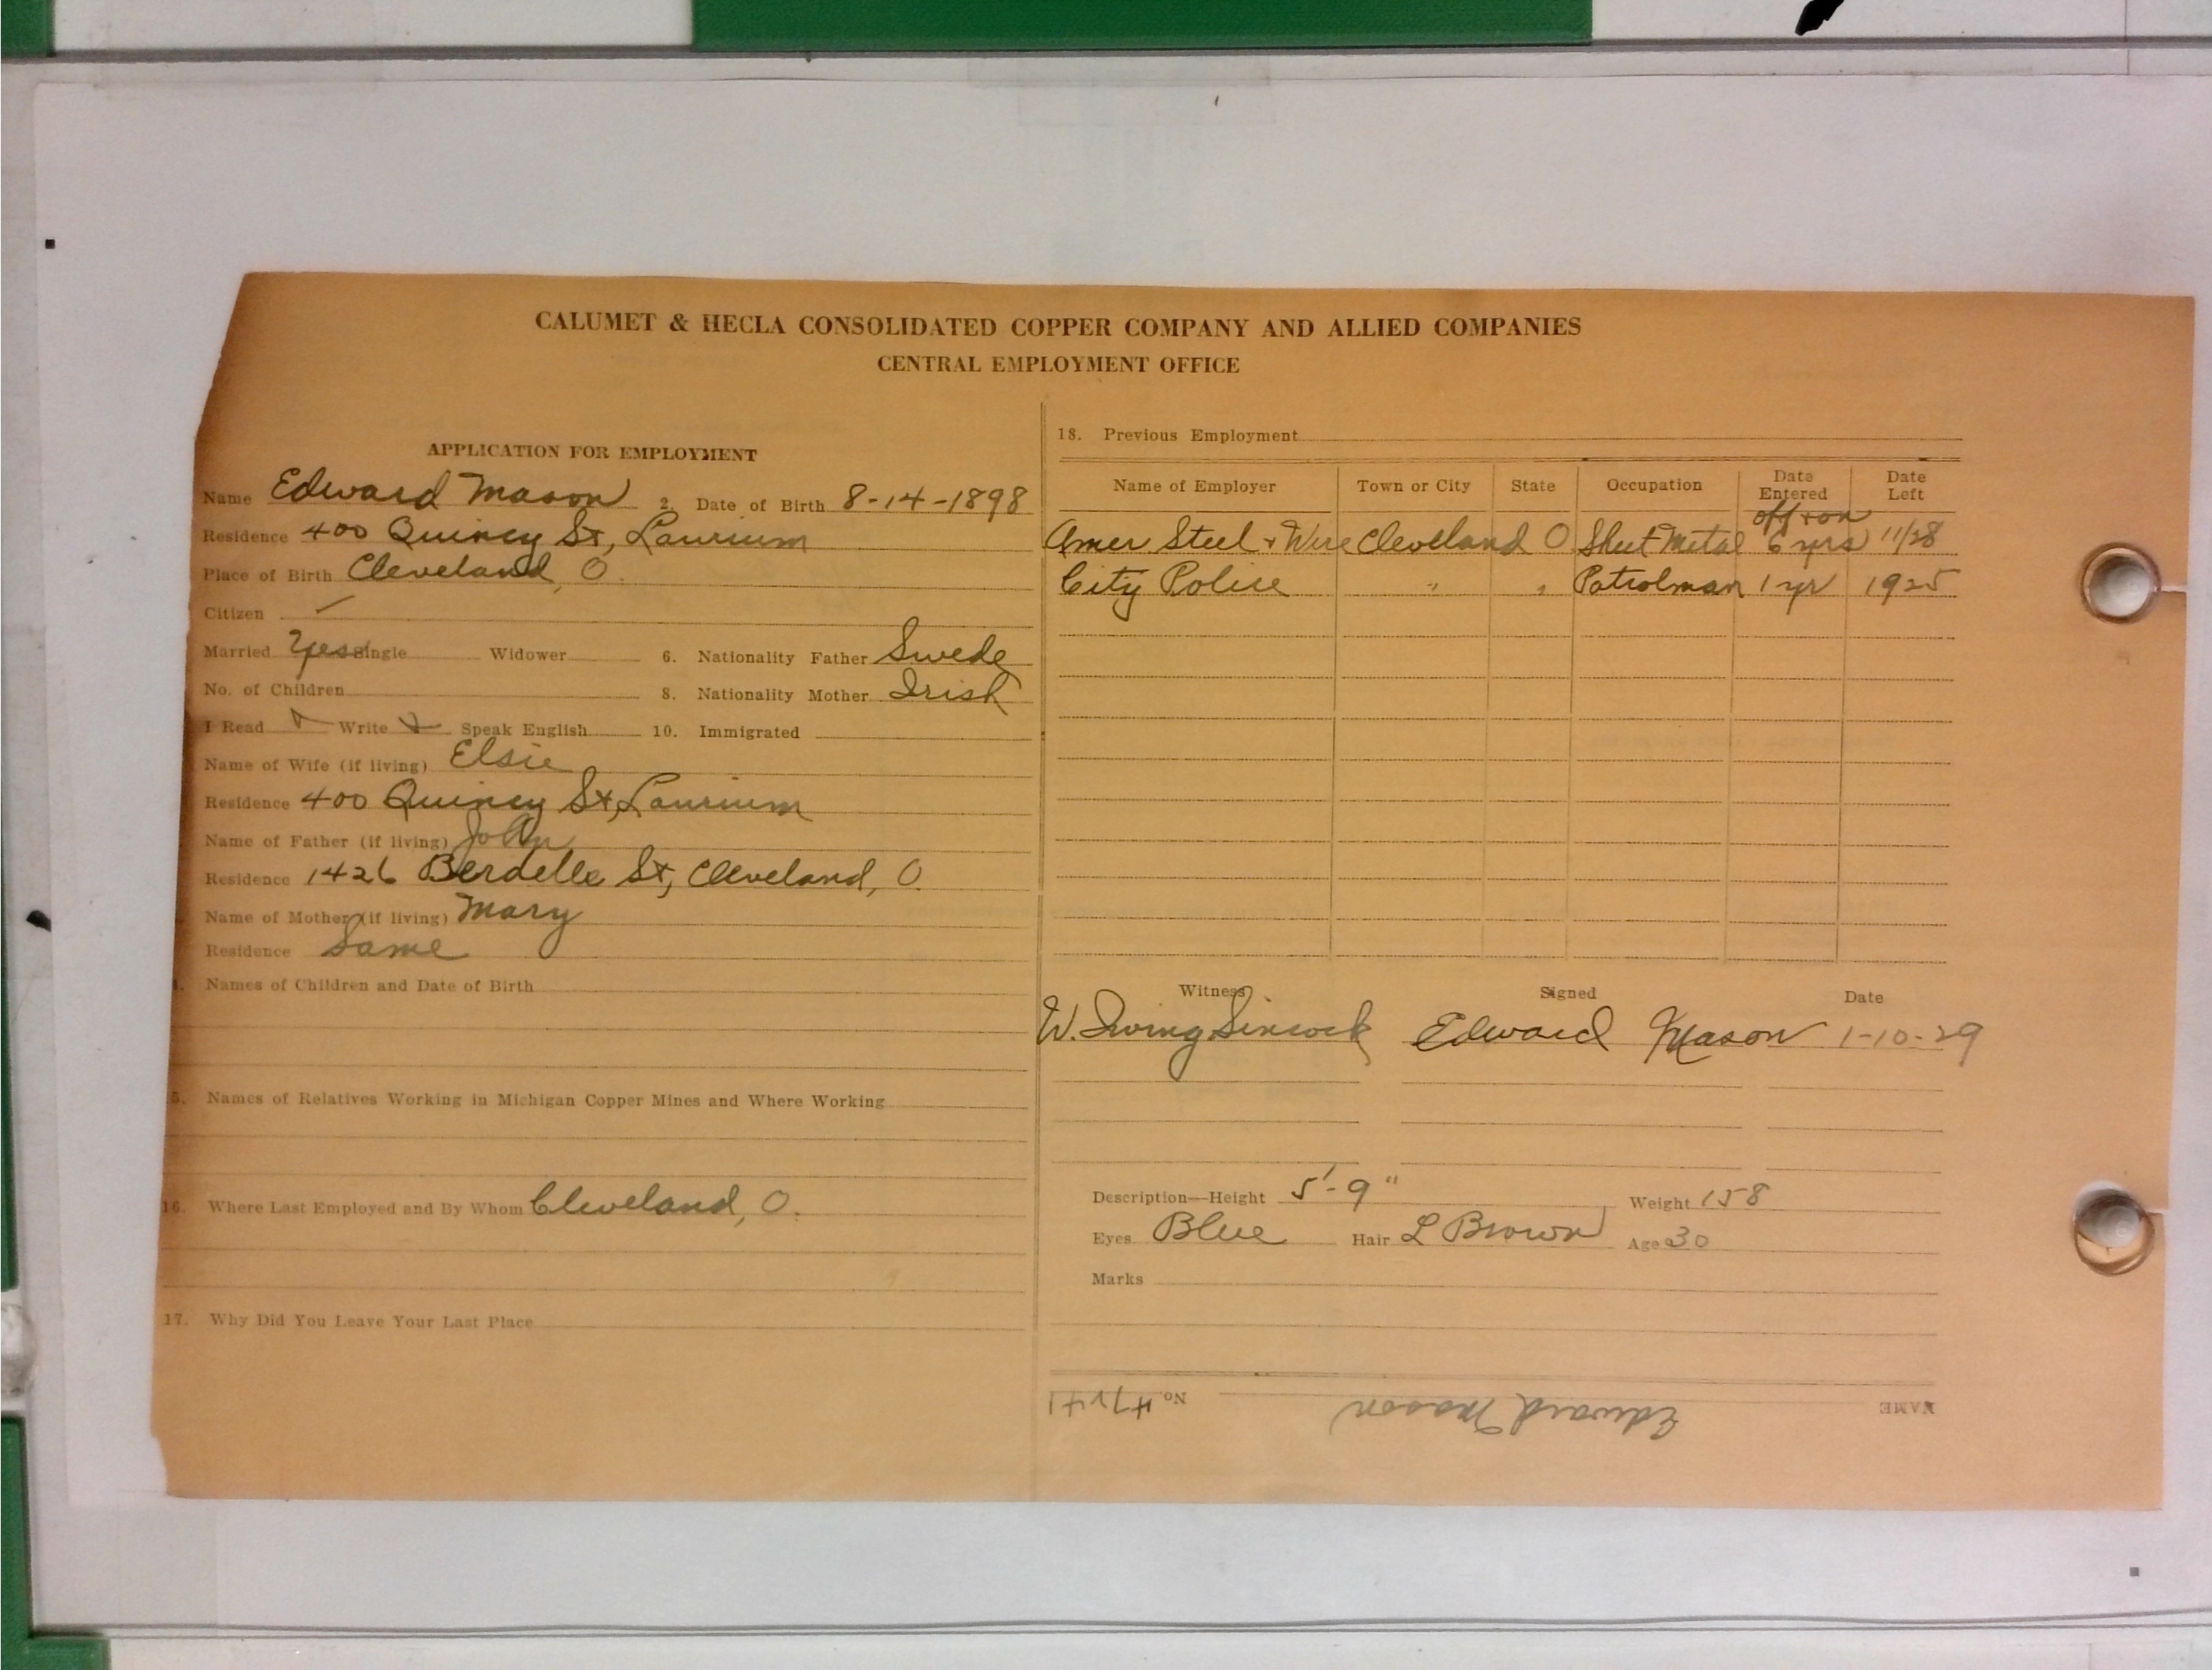 CALUMET & HECLA CONSOLIDATED COPPER COMPANY AND ALLIED COMPANIES
CENTRAL EMPLOYMENT OFFICE
APPLICATION FOR EMPLOYMENT
Name Edward Mason 2. Date of Birth 8-14-1898
Residence 400 Quincy St, Laurium
Place of Birth Cleveland, O.
Citizen ✓
Married Yes Single Widower 6. Nationality Father Swede
No. of Children 8. Nationality Mother Irish
I Read ✓ Write ✓ Speak English 10. Immigrated
Name of Wife (if living) Elsie
Residence 400 Quincy St, Laurium
Name of Father (if living) John
Residence 1426 Berdelle St, Cleveland, O.
Name of Mother (if living) Mary
Residence Same
Names of Children and Date of Birth
5. Names of Relatives Working in Michigan Copper Mines and Where Working
16. Where Last Employed and By Whom Cleveland, O.
17. Why Did You Leave Your Last Place
18. Previous Employment
Name of Employer Town or City State Occupation Date Entered Date Left
off + on
Amer Steel + Wire Cleveland O. Sheet Metal 6 yrs 11/28
City Police " " Patrolman 1 yr 1925
Witness Signed Date
W. Irving Sincock Edward Mason 1-10-29
Description—Height 5'-9" Weight 158
Eyes Blue Hair L Brown Age 30
Marks
NAME Edward Mason No.